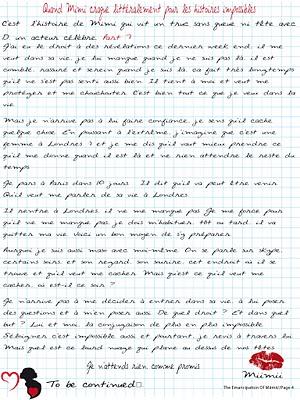 Quand Mimi craque littéralement pour les histoires impossibles
C'est l'histoire de Mimi qui vit un truc sans queue ni tête avec
D un acteur célèbre Part 7
J'ai eu le droit à des révélations ce dernier week end, il me
veut dans sa vie, je lui manque quand je ne suis pas là, il est
comblé, rassuré et serein quand je suis là, ça fait très longtemps
qu'il ne s'est pas senti aussi bien. Il tient à moi et veut me
protéger et me chouchouter. C'est bien tout ce que je veux dans la
vie.
Mais je n'arrive pas à lui faire confiance, je sens qu'il cache
quelque chose. En poussant à l'extrême, j'imagine que c'est une
femme à Londres ? et je me dis qu'il vaut mieux prendre ce
qu'il me donne quand il est là et ne rien attendre le reste du
temps.
Je pars à Paris dans 10 jours. Il dit qu'il va peut être venir.
Qu'il veut me parler de sa vie à Londres.
Il rentre à Londres, il ne me manque pas. Je me force pour
qu'il ne me manque pas, je dois m'habituer, tôt ou tard, il va
quitter ma vie, voici un bon moyen de s'y préparer.
Aujourd'hui, je suis aussi maso avec moi-même. On se parle sur skype
certains soirs et son regard, son sourire, cet endroit où il se
trouve et qu'il veut me cacher. Mais qu'est ce qu'il veut me
cacher, où est-il ce soir ?
Je n'arrive pas à me décider à entrer dans sa vie, à lui poser
des questions et à m'en poser aussi. De quel droit ? Et dans quel
but ? Lui et moi, la conjugaison de plus en plus impossible.
S'éloigner c'est impossible aussi et pourtant, je revis à travers lui.
Mais quel est ce lourd nuage qui plane au dessus de nos têtes
Je n'attends rien comme promis
Mimii
To be continued□
The Emancipation Of Mimiii/Page 4